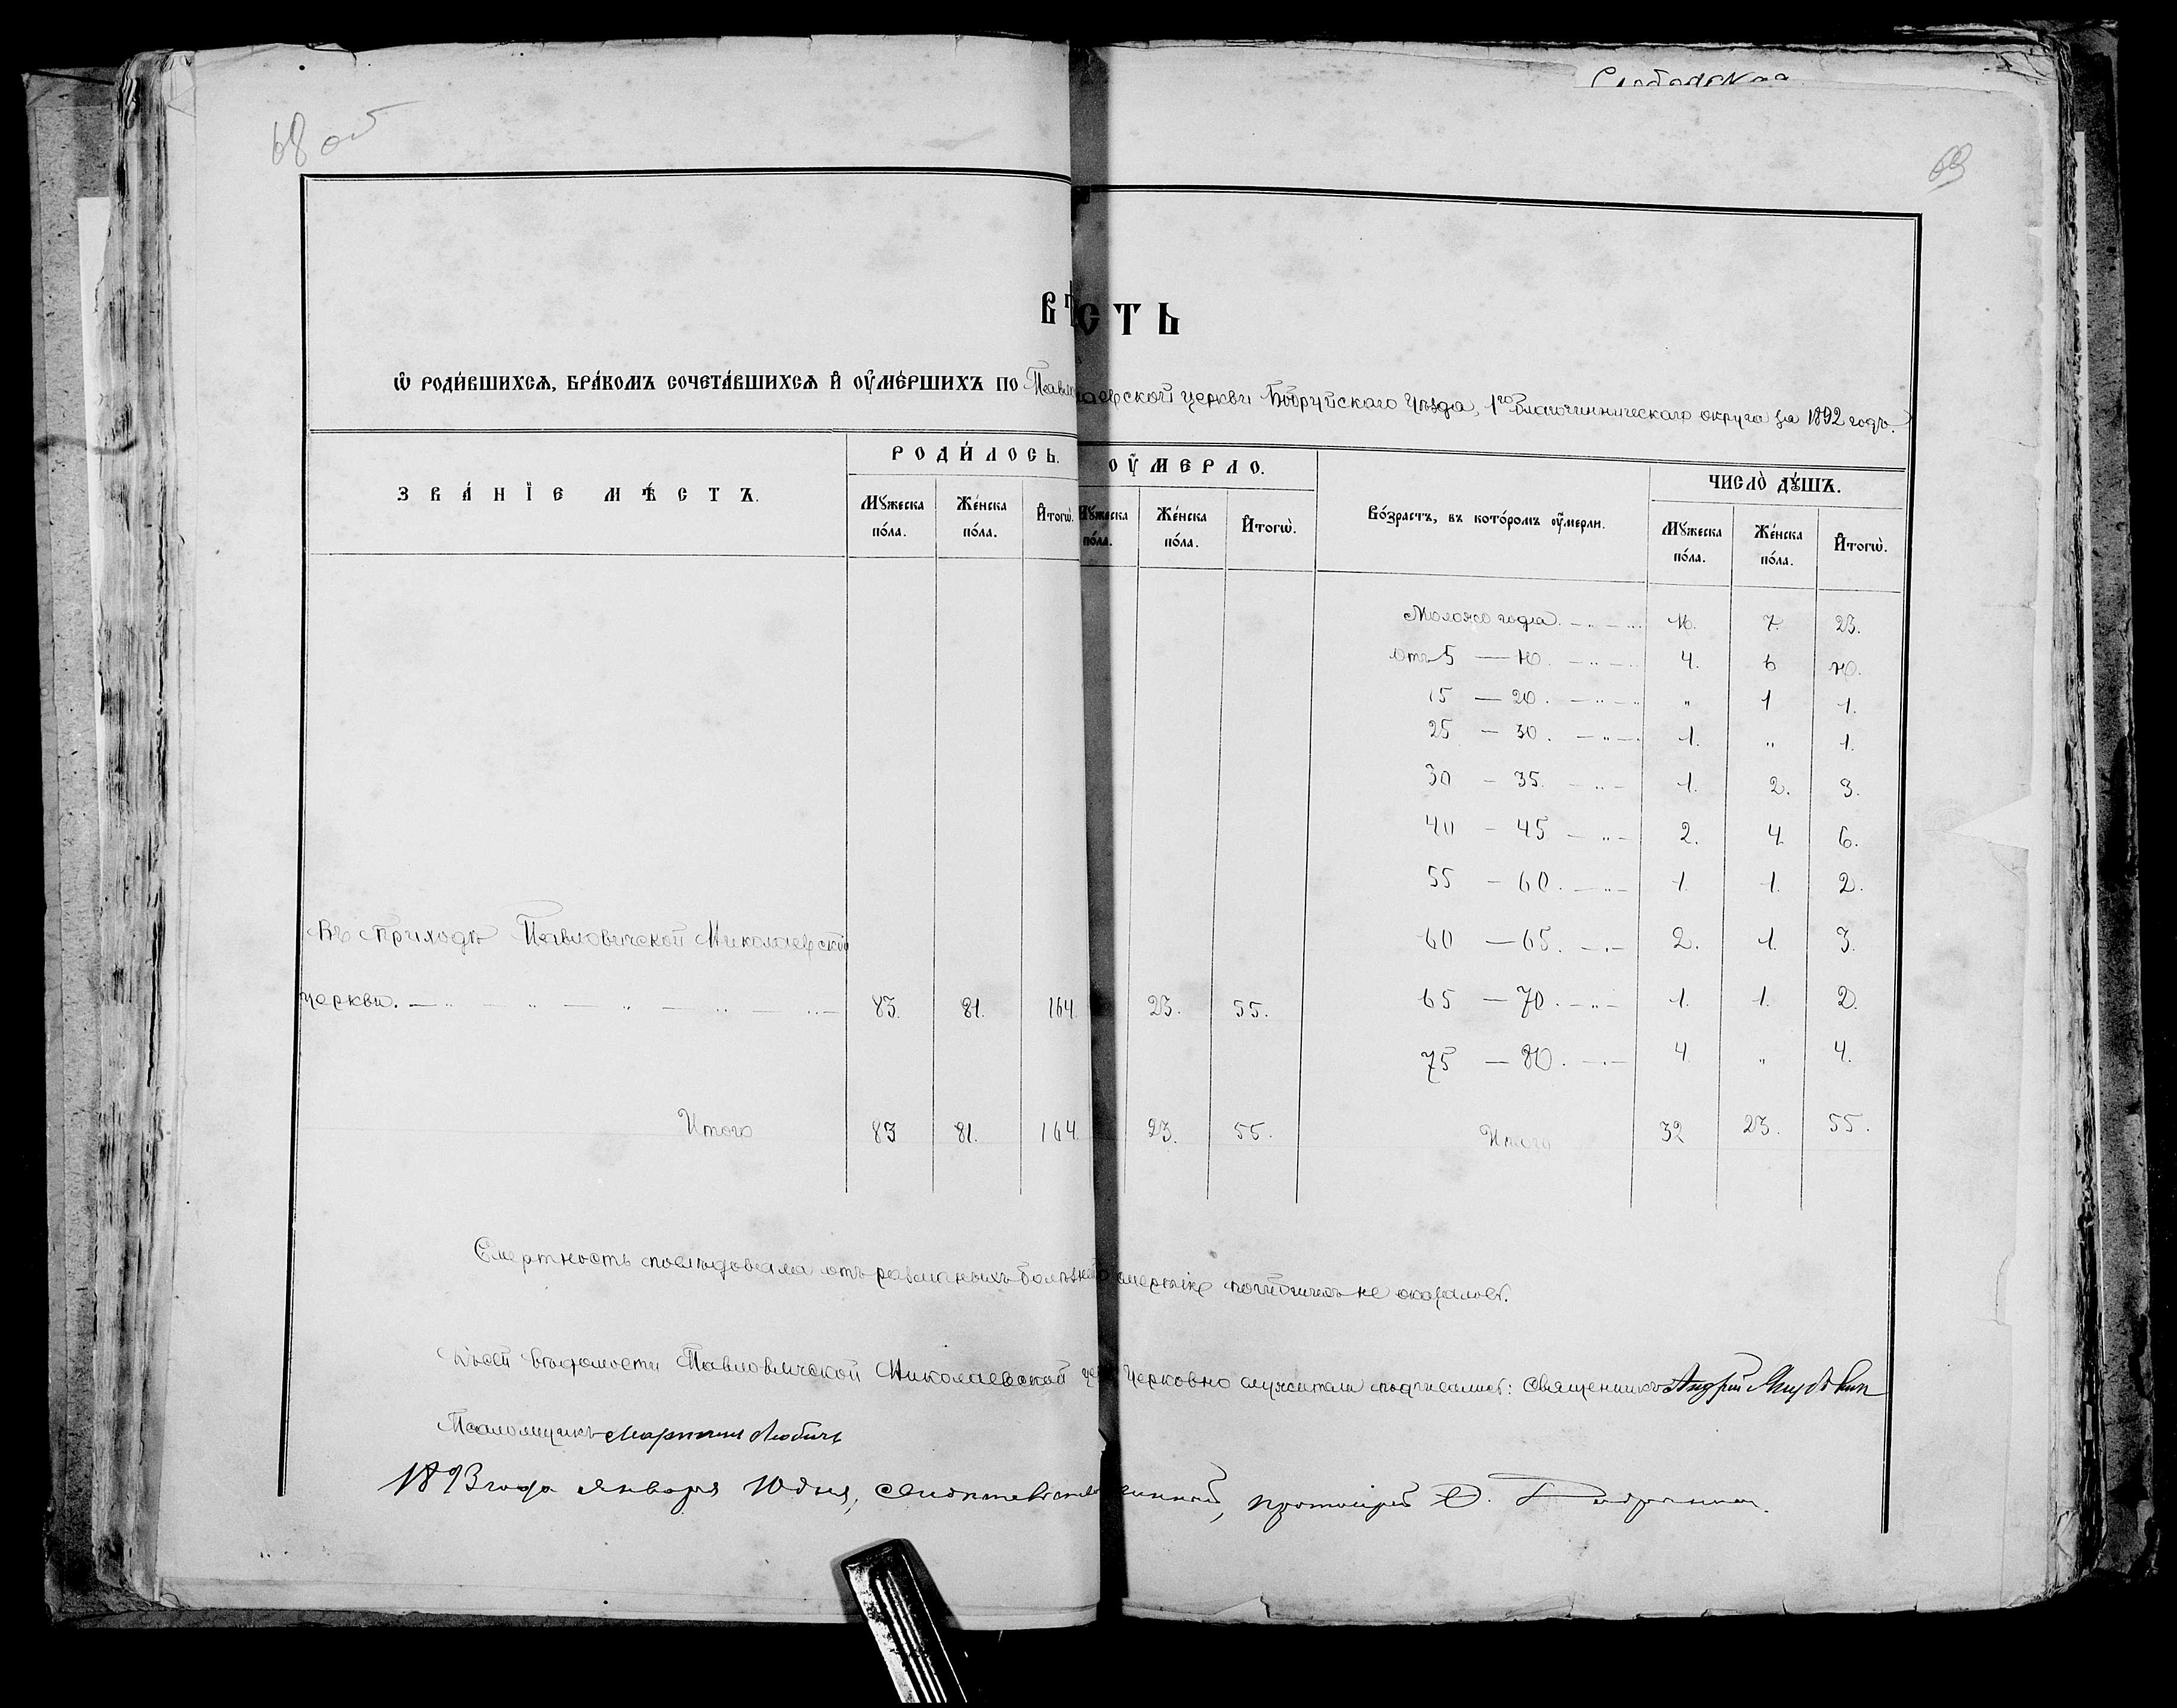 68 об
69
Слободская
вѣсть
Ѡ роди́вшихсѧ, бра́комъ сочета́вшихсѧ и҆ оу҆ме́ршихъ по Павло аевской церкви Бобруйскаго уѣзда, 1го благочинническаго округа за 1892 годъ.
Зва́нїе мѣ́стъ. Роди́лось. Оу҆мерло. Во́зрастъ, въ кото́ромъ оу҆́мерли. Число̀ дꙋ́шъ.
Мꙋ́жеска по́ла. Же́нска по́ла. И҆тогѡ̀. Мꙋ́жеска по́ла. Же́нска по́ла. И҆тогѡ̀. Мꙋ́жеска по́ла. Же́нска по́ла. И҆тогѡ̀.
Моложе года. — „ — 16. 7. 23.
Отъ 5 — 10. — „ — 4. 6 10.
15 — 20. — „ — „ 1 1.
25 — 30. — „ — 1. „ 1.
30 — 35. — „ — 1. 2. 3.
40 — 45 — „ — 2. 4. 6.
55 — 60. — „ — 1. 1. 2.
Въ приходѣ Павловичской Николаевской 60 — 65. — „ — 2. 1. 3.
церкви. — „ — „ — „ — „ — 83. 81. 164. 23. 55. 65 — 70. — „ — 1. 1. 2.
75 — 80. — „ — 4 „ 4.
Итого 83 81. 164. 23. 55. Итого 32 23. 55.
Смертность послѣдовала отъ различныхъ болѣзней смертію погибшихъ не оказалось.
Къ сей вѣдомости Павловичской Николаевской це церковно служители подписались: Священникъ Андрей
Псаломщикъ Мартинъ Любичъ
1893 года января 10 дня, протоіерей